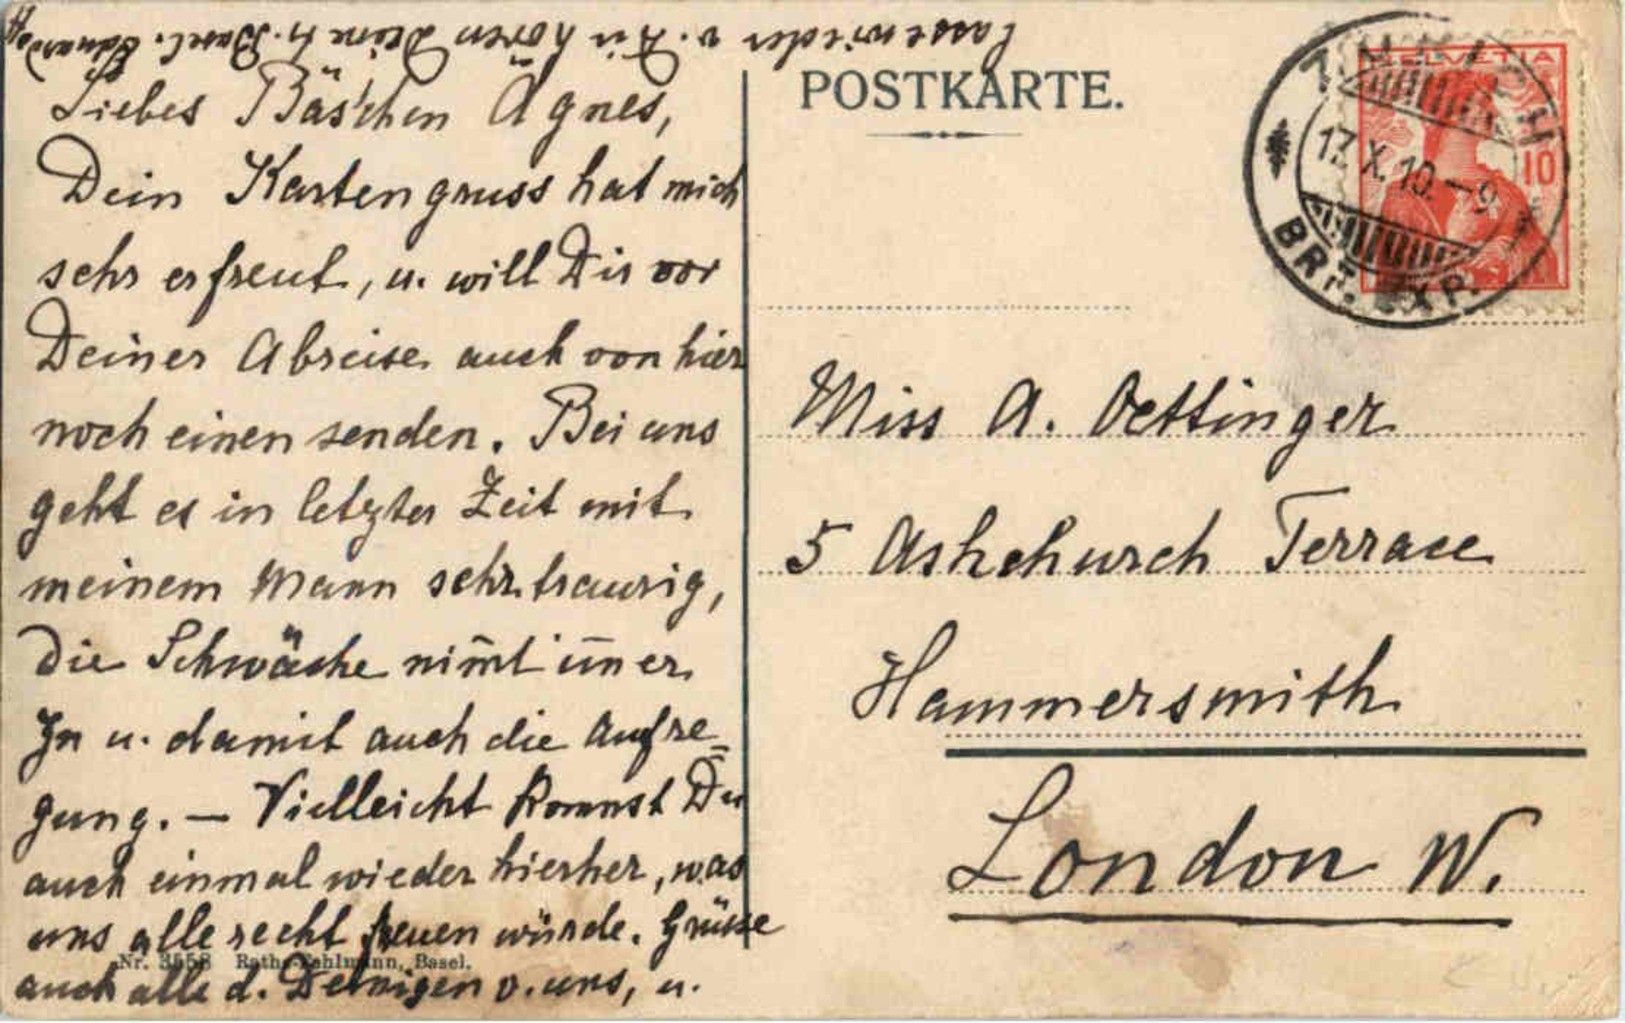 Liebes Bäschen Agnes,
Dein Kartengruss hat mich
sehr erfreut, u. will Dir vor
Deiner Abreise auch von hier
noch einen senden. Bei uns
geht es in letzter Zeit mit
meinem Mann sehr traurig,
die Schwäche nim̅t im̅er
zu u. damit auch die Aufre=
gung. — Vielleicht kommst Du
auch einmal wieder hierher, was
uns alle recht freuen würde. Grüsse
auch alle d. Deinigen v. uns, u.
lasse wieder v. Dir hören Deine tr. Basel.
Nr. 3558 Rathe-Fehlmann, Basel.
POSTKARTE.
HELVETIA
10
ZÜRICH
13.X.10.–9
BRF. EXP.
Miss A. Oettinger
5 Ashchurch Terrace
Hammersmith
London W.